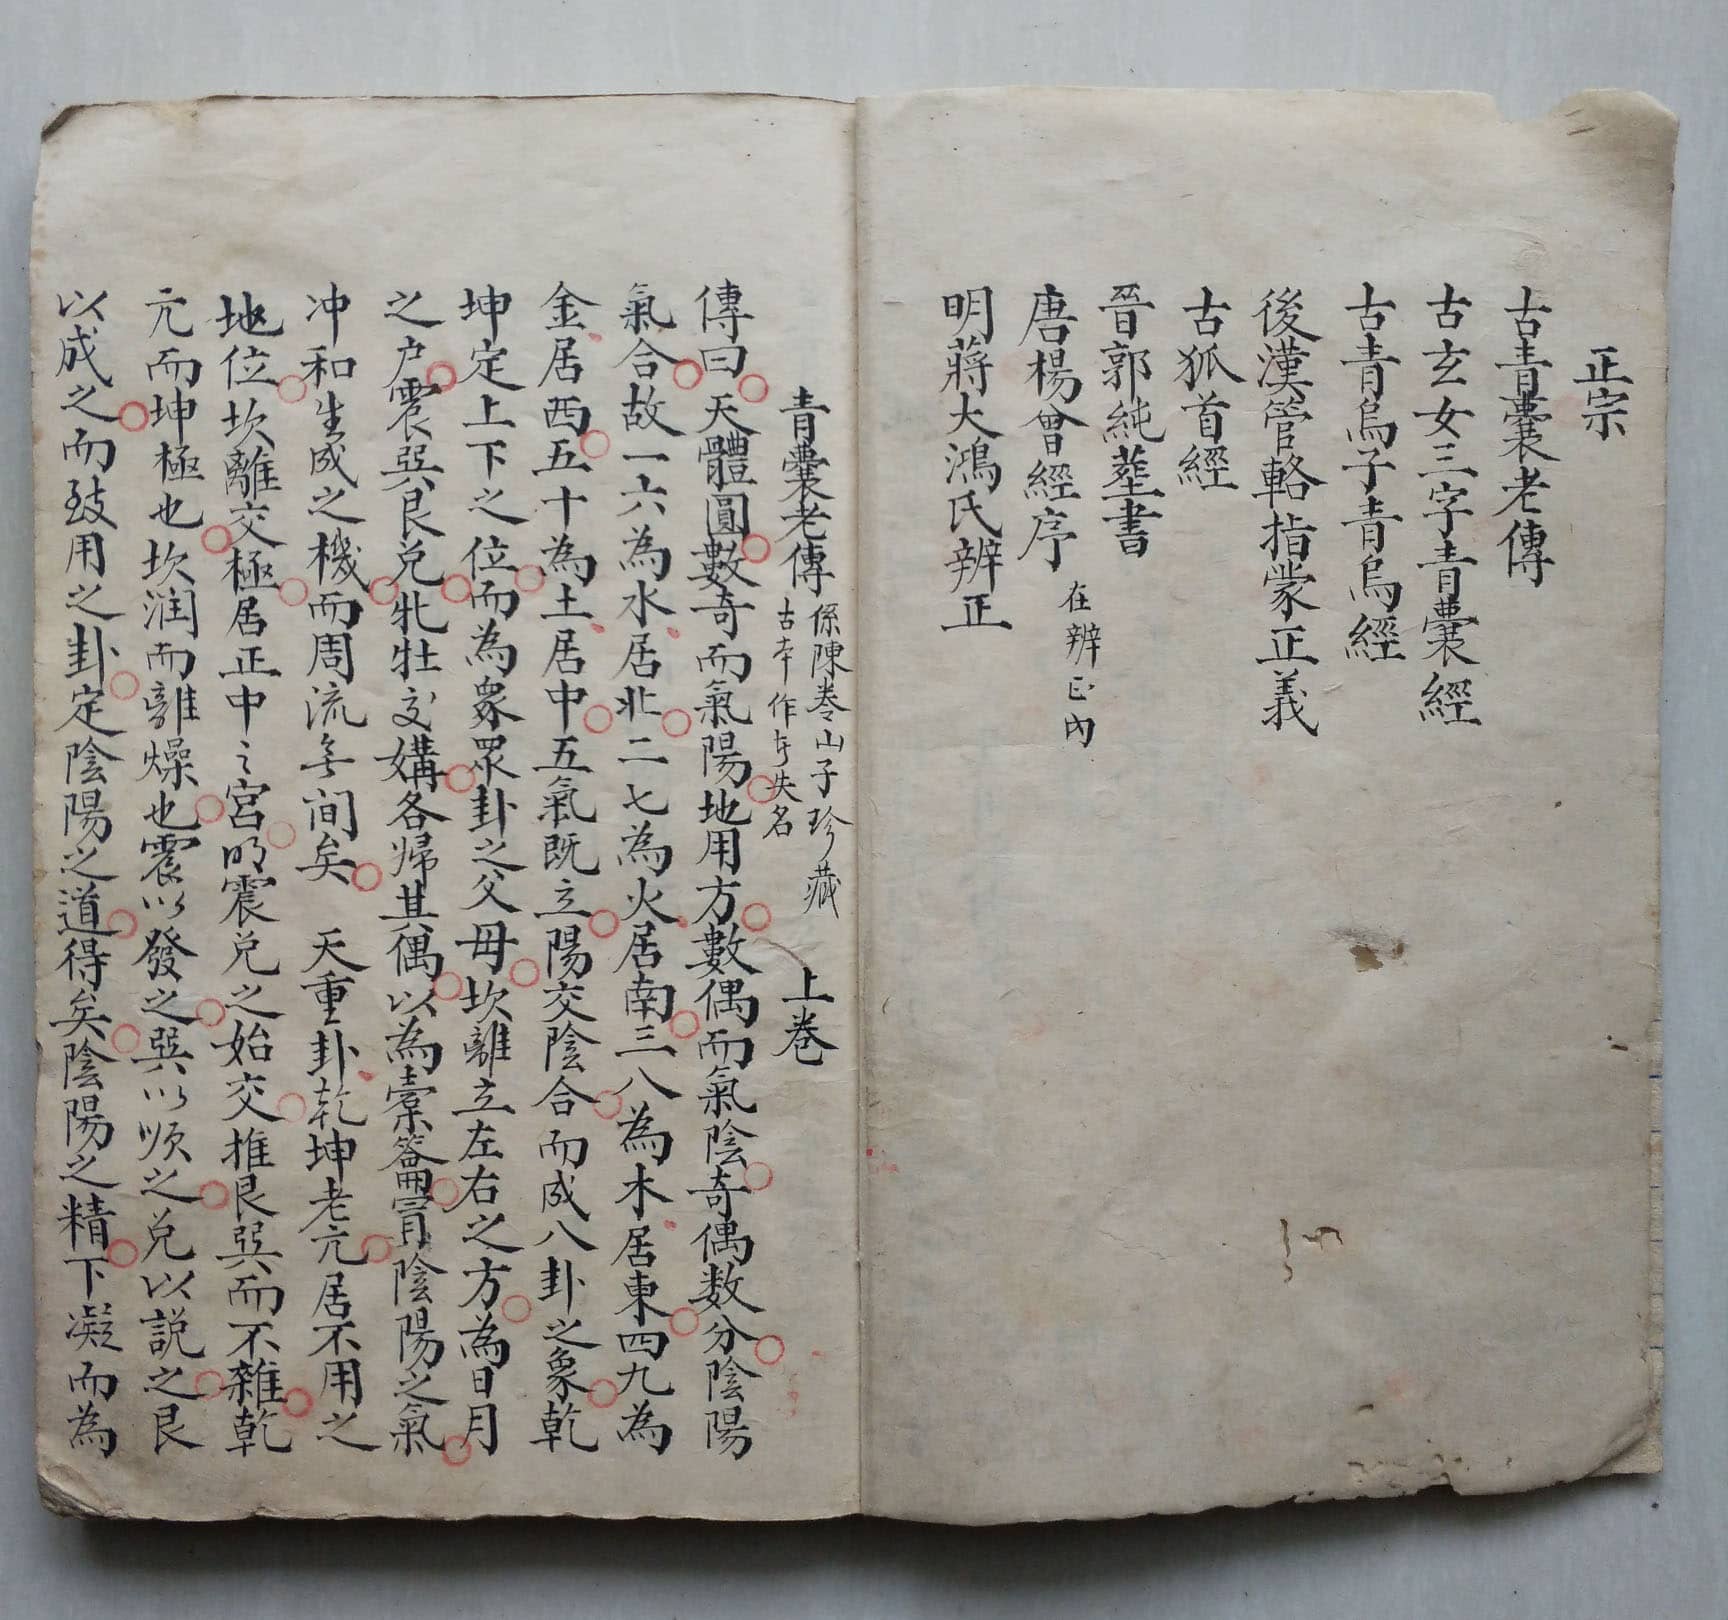 正宗
古青囊老傳
古玄女三字青囊經
古青烏子青烏經
後漢管輅指蒙正義
古狐首經
晉郭純塟書
唐楊曾經序
在辨正內
明蔣大鴻氏辨正
青囊老傳 係陳巻山子珍藏 上巻
古本作与失名
傳曰天體圓數奇而氣陽地用方數偶而氣陰奇偶数分陰陽
氣合故一六為水居北二七為火居南三八為木居東四九為
金居西五十為土居中五氣既立陽交陰合而成八卦之象乾
坤定上下之位而為象眾卦之父母坎離立左右之方為日月
之户震巽艮兌牝牡交媾各㷌其偶以為橐籥冐陰陽之氣
冲和生成之機而周流無间矣 天重卦乾坤老亢居不用之
地位坎離交極居正中之宮明震兌之始交推艮巽而不雜乾
亢而坤極也坎润而離燥也震以發之巽以順之兌以説之艮
以成之而致用之卦定陰陽之道得矣陰陽之精下凝而為